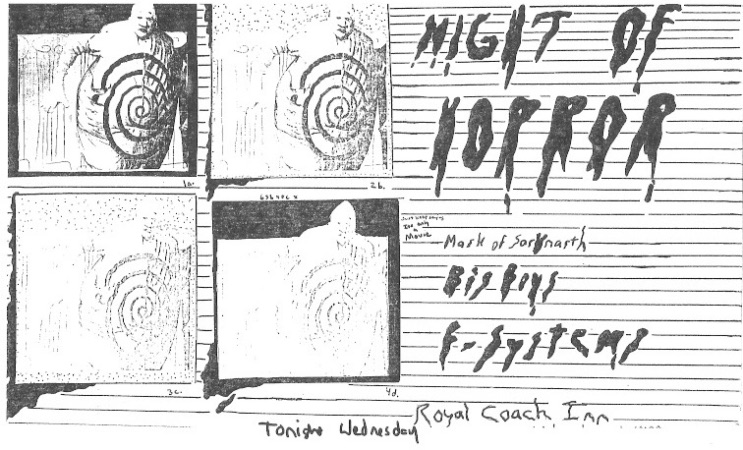 NIGHT OF
HORROR
1a.
2b.
3c.
4d.
Movie
Mask of Sorgnarth
Big Boys
F-Systems
Royal Coach Inn
Tonight Wednesday